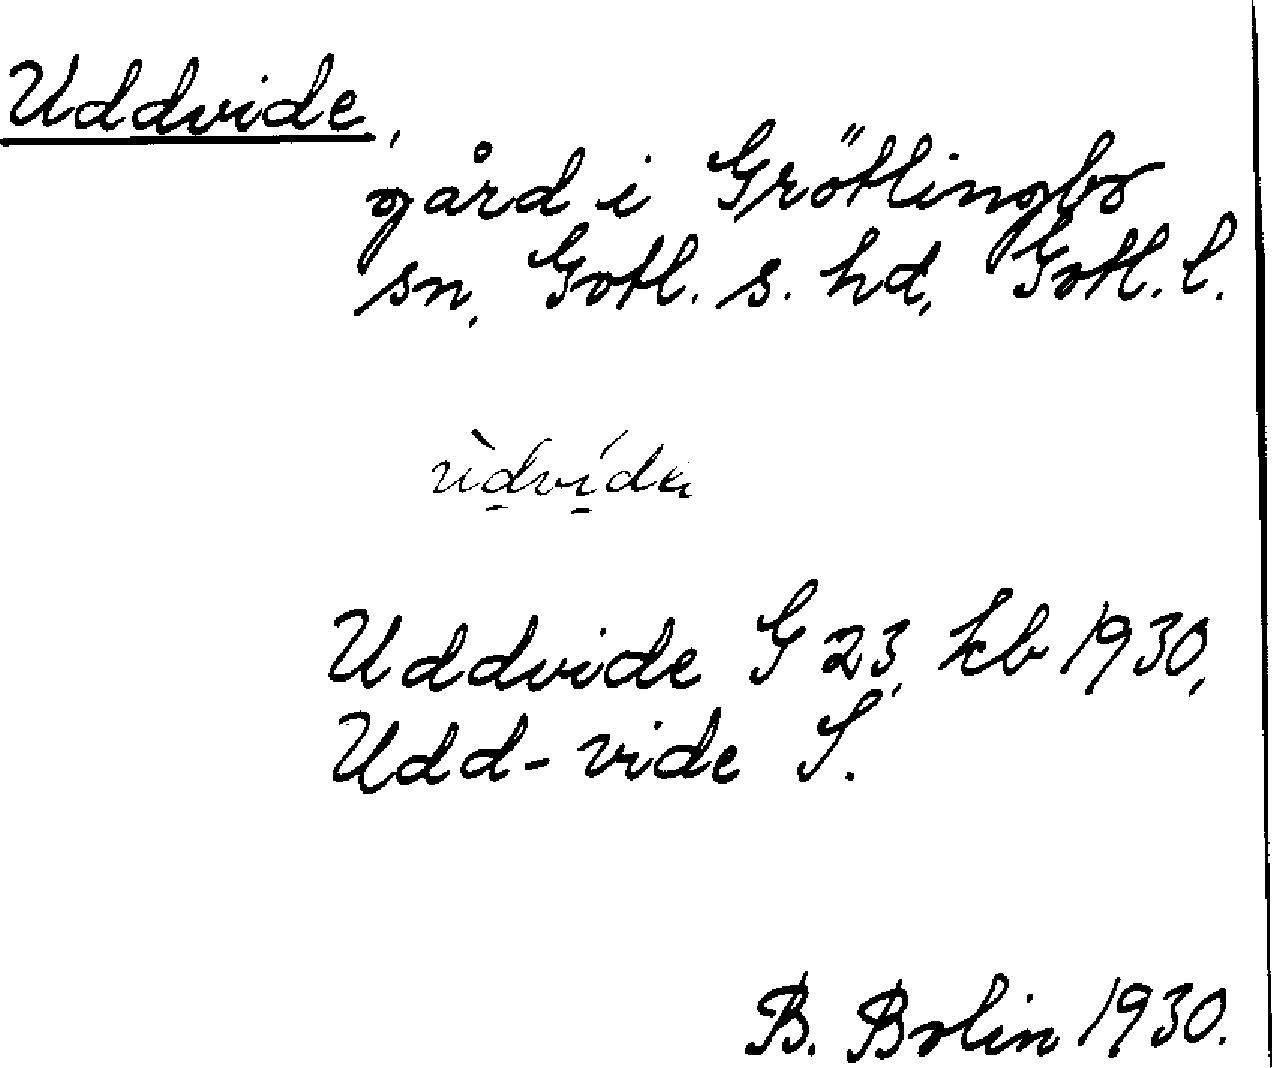 Uddvide,
gård i Grötlingbo
sn, Gotl. s. hd, Gotl. l.
ùdvída
Uddvide G 23, kb 1930,
Udd-vide S.
B. Bolin 1930.